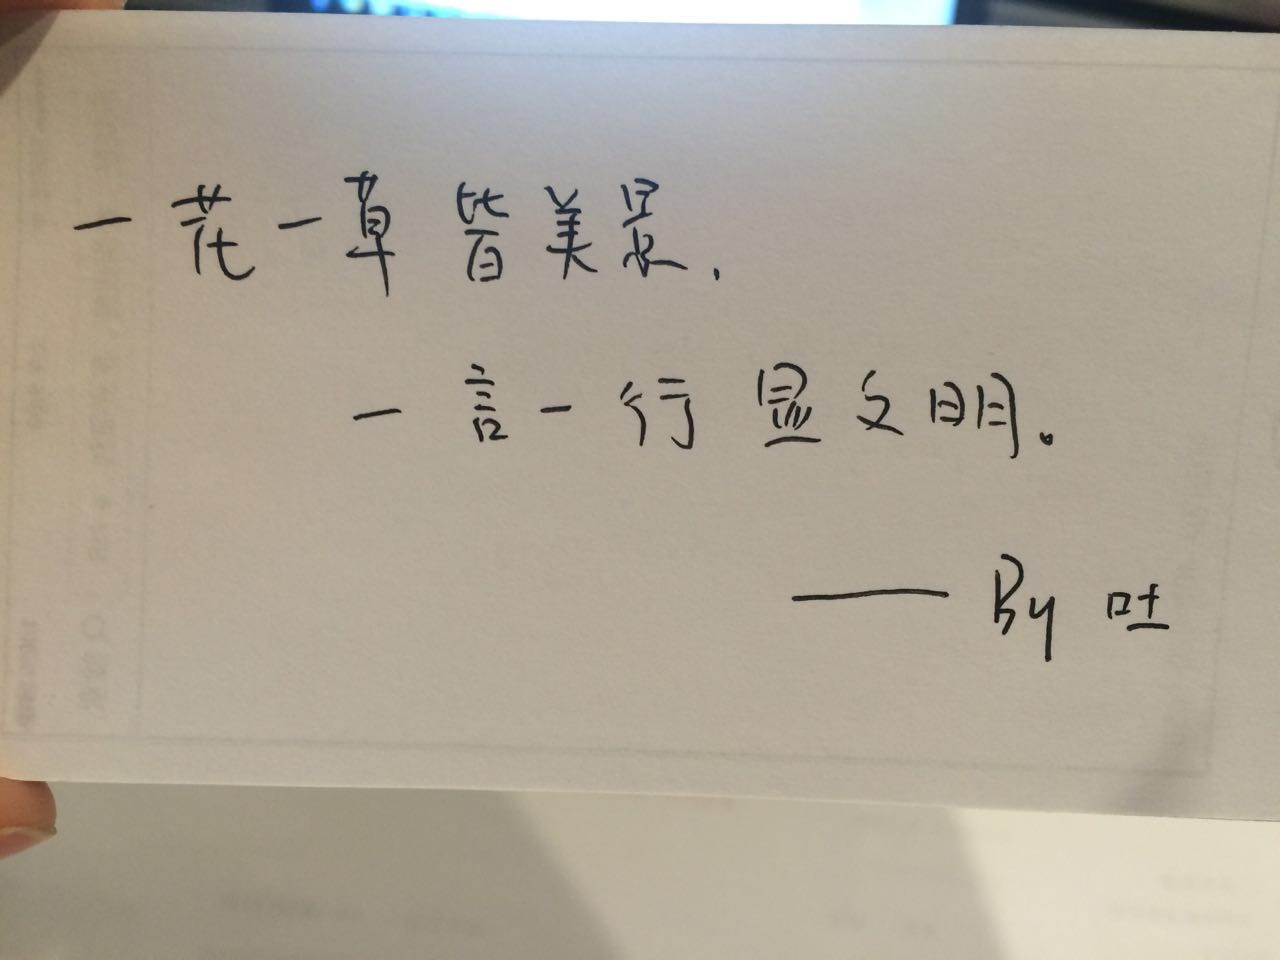 一花一草皆美景，
一言一行显文明。
—— By 吐